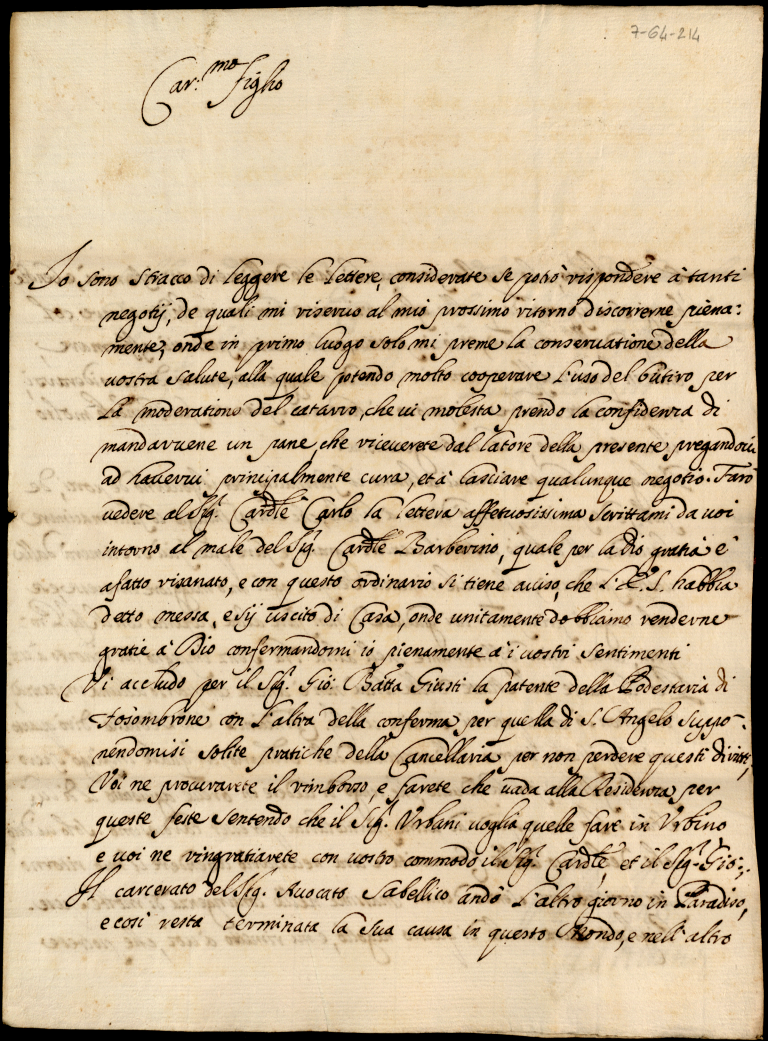 7-64-214
Car:mo figlio
Io sono stracco di leggere le lettere, considerate se potrò rispondere à tanti
negotij, de quali mi riseruo al mio prossimo ritorno discorrerne piena:
mente, onde in primo luogo solo mi preme la conseruatione della
uostra salute, alla quale potendo molto cooperare l'uso del butiro per
la moderatione del catarro, che ui molesta prendo la confidenza di
mandaruene un pane, che riceuerete dal latore della presente pregandoui
ad hauerui principalmente cura, et à lasciare qualunque negotio. Farò
uedere al Sig.r Cardle Carlo la lettera affettuosissima scrittami da uoi
intorno al male del Sig. Cardle Barberino, quale per la Dio gratia è
afatto risanato, e con questo ordinario si tiene auiso, che l'E.S. habbia
detto messa, e sij uscito di Casa, onde unitamente dobbiamo renderne
gratie à Dio confermandomi io pienamente à i uostri sentimenti
Vi accludo per il Sig. Gio: Batta Giusti la patente della Podestaria di
Fosombrone con l'altra della conferma per quella di S. Angelo suppo-
nendomisi solite pratiche della Cancellaria per non perdere questi diritti,
Voi ne procurarete il rimborso, e farete che uada alla Residenza per
queste feste sentendo che il Sig.r Vrbani uoglia quelle fare in Vrbino
e uoi ne ringratiarete con uostro commodo il Sig.r Cardle, et il Sig.r Gio:;
Il carcerato del Sig. Auocato Sabellico andò l'altro giorno in Paradiso,
e così resta terminata la sua causa in questo Mondo, e nell'altro